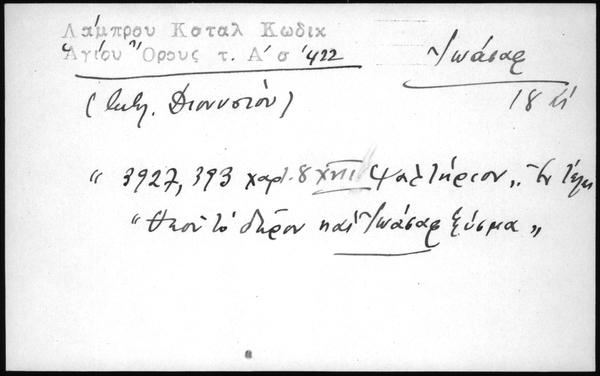 Λάμπρου Κοταλ Κωδικ
Ἁγίου Ὄρους τ. Α΄ σ 422
Ἰωάσαρ
18 αἰ
( Διονυσίου)
" 3927, 393 χαρτ. 8 XVIII Ψαλτήριον „ Ἐν τέλει
" Θεοῦ τὸ δῶρον καὶ Ἰωάσαρ ξύσμα „